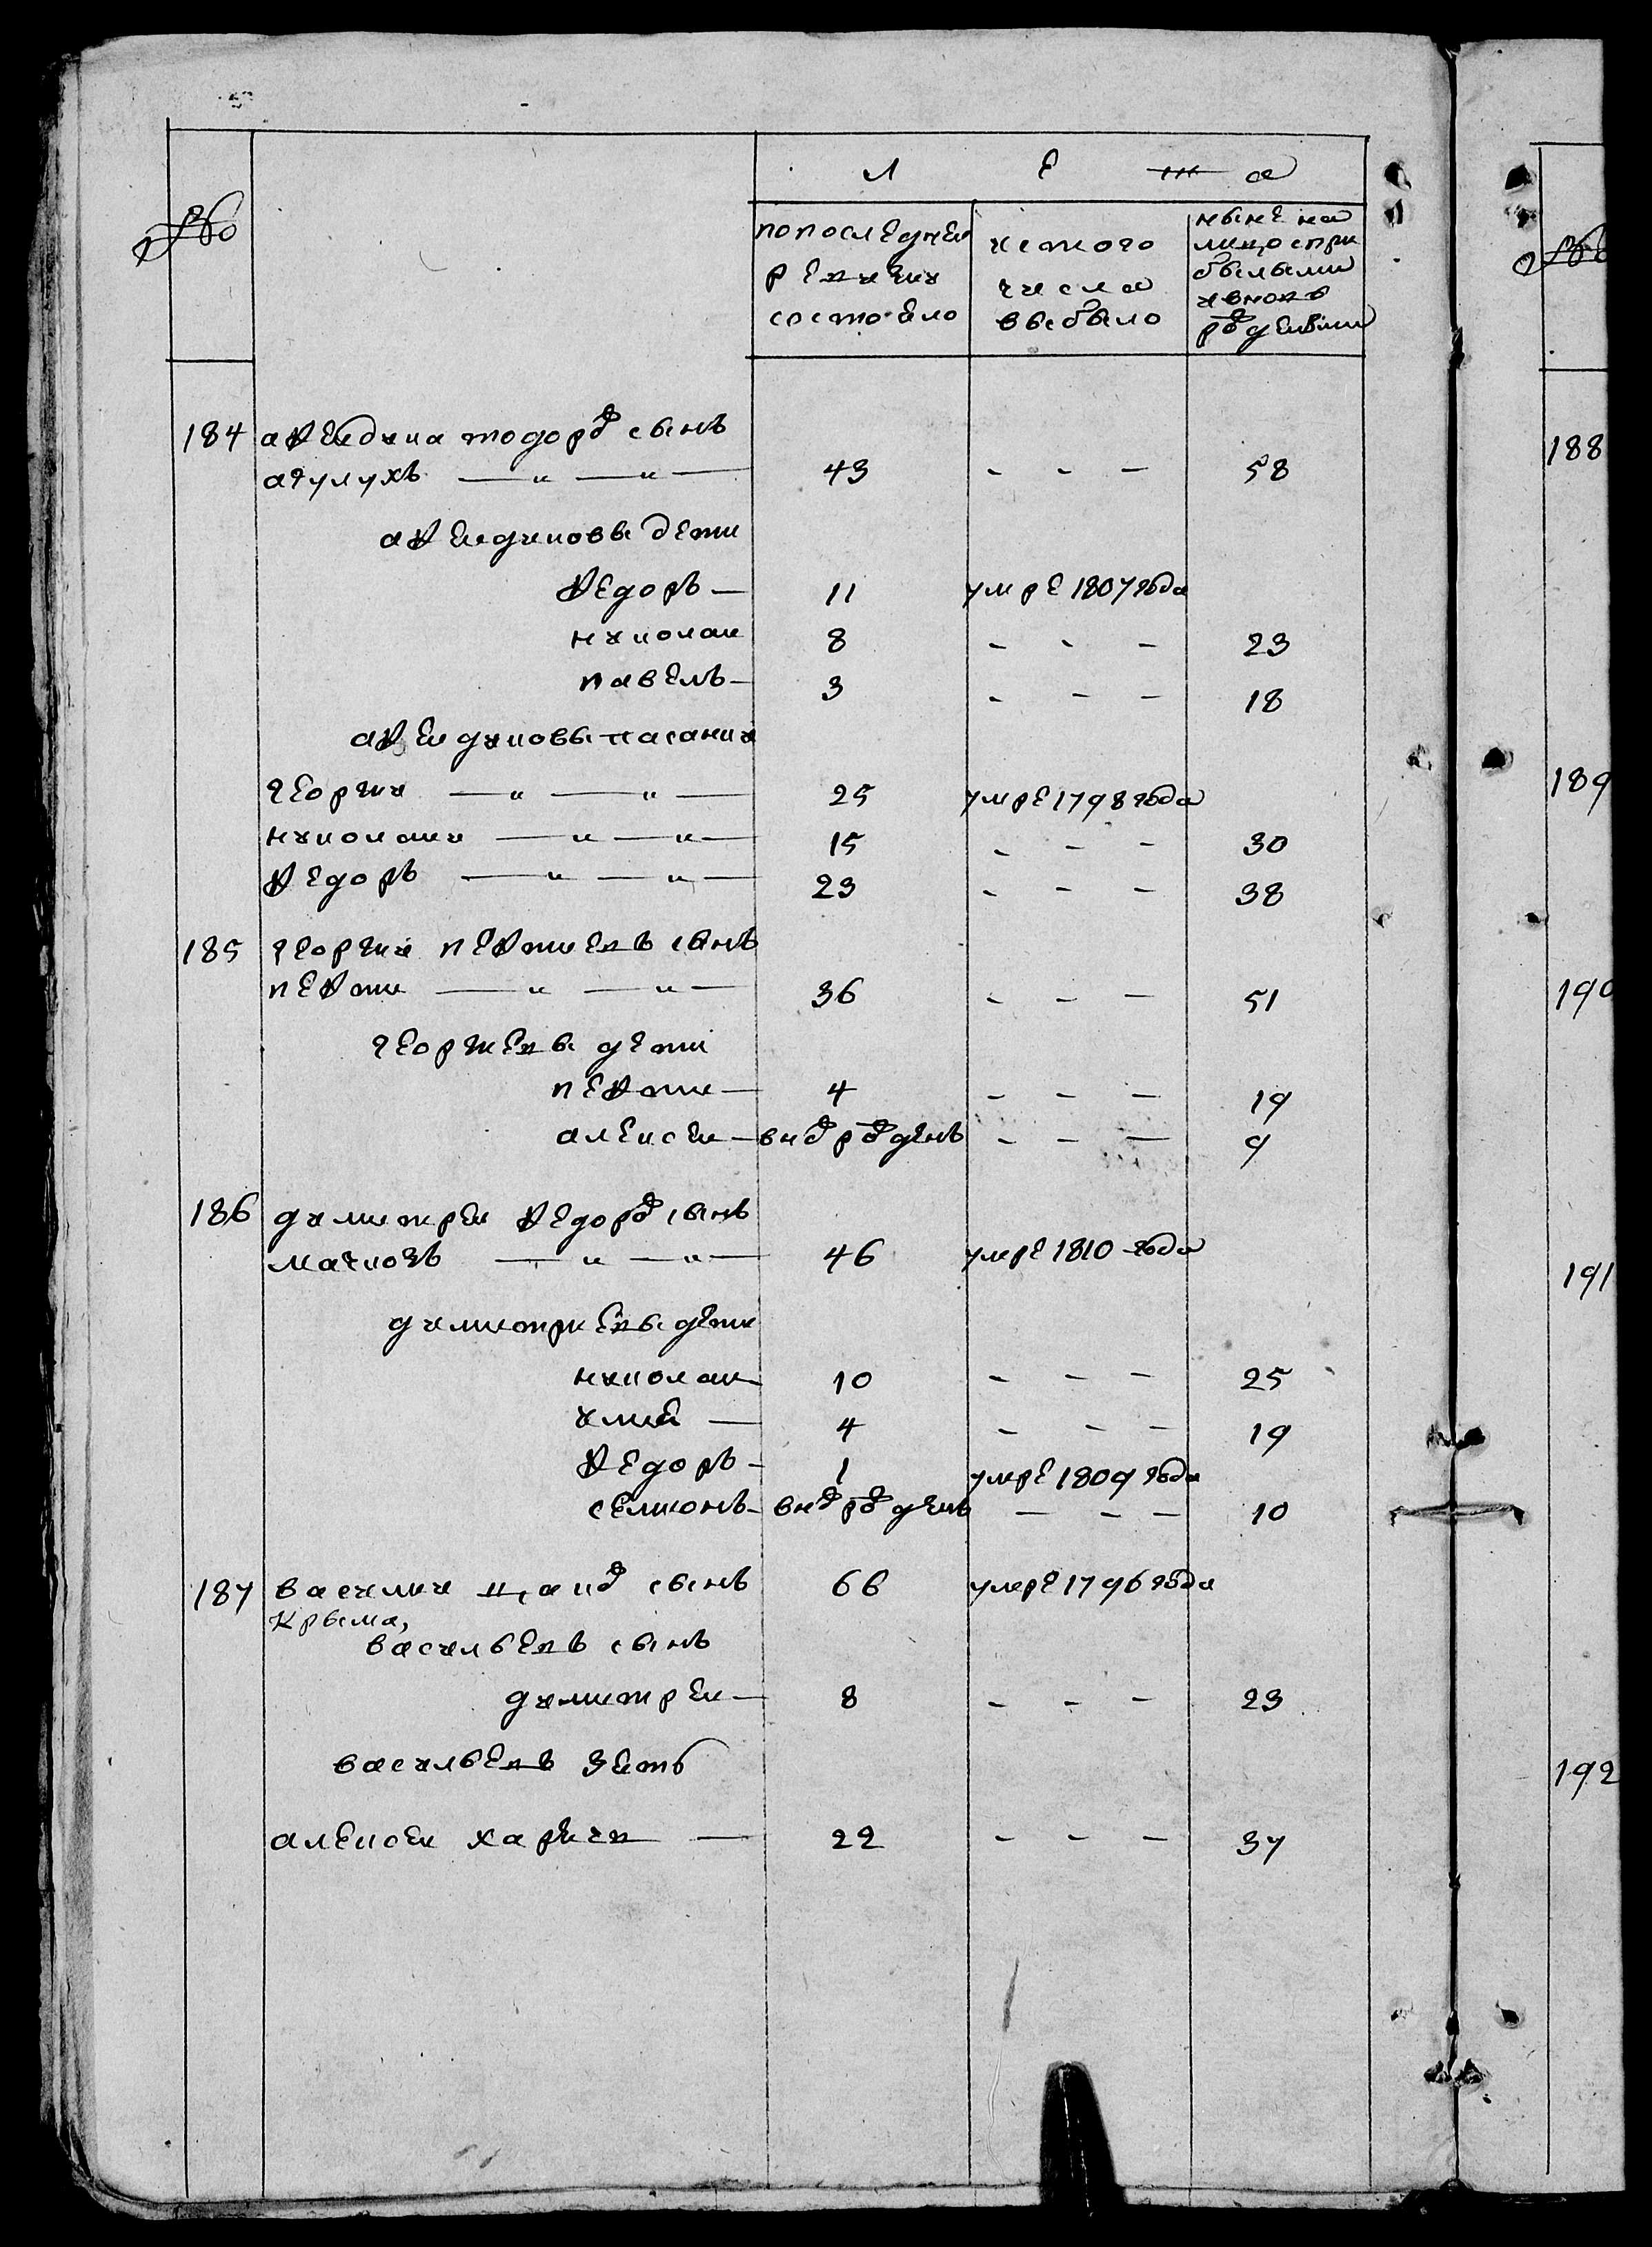 №
Л Е Т А
попоследнеи
ревизии
состояло
истого
числа
выбыло
ныне на
лицо спри
былыми
ивновъ
рождеными
184 афендика тодоровъ сынъ
ачулухъ — " — " — 43 - - - 58
афендиковы дети
федоръ — 11 умре 1807 года
николаи 8 - - - 23
павелъ — 3 - - - 18
афендиковы пасанки
георги — " — " — 25 умре 1798 года
николаи — " — " — 15 - - - 30
федоръ — " — " — 23 - - - 38
185 георги пефтиевъ сынъ
пефти — " — " — 36 - - - 51
георгиевы дети
пефти — 4 - - - 19
алексеи — вновъ рожденъ - - - 9
186 димитреи федоровъ сынъ
мачкозъ — " — " — 46 умре 1810 года
димитриевы дети
николаи 10 - - - 25
илиа — 4 - - - 19
федоръ — 1 умре 1809 года
семионъ — вновъ рожденъ — - - 10
187 василии сынъ 66 умре 1796 года
Крыма,
васильевъ сынъ
димитреи — 8 - - - 23
васильевъ зеть
алексеи — 22 - - - 37
188
189
190
191
192